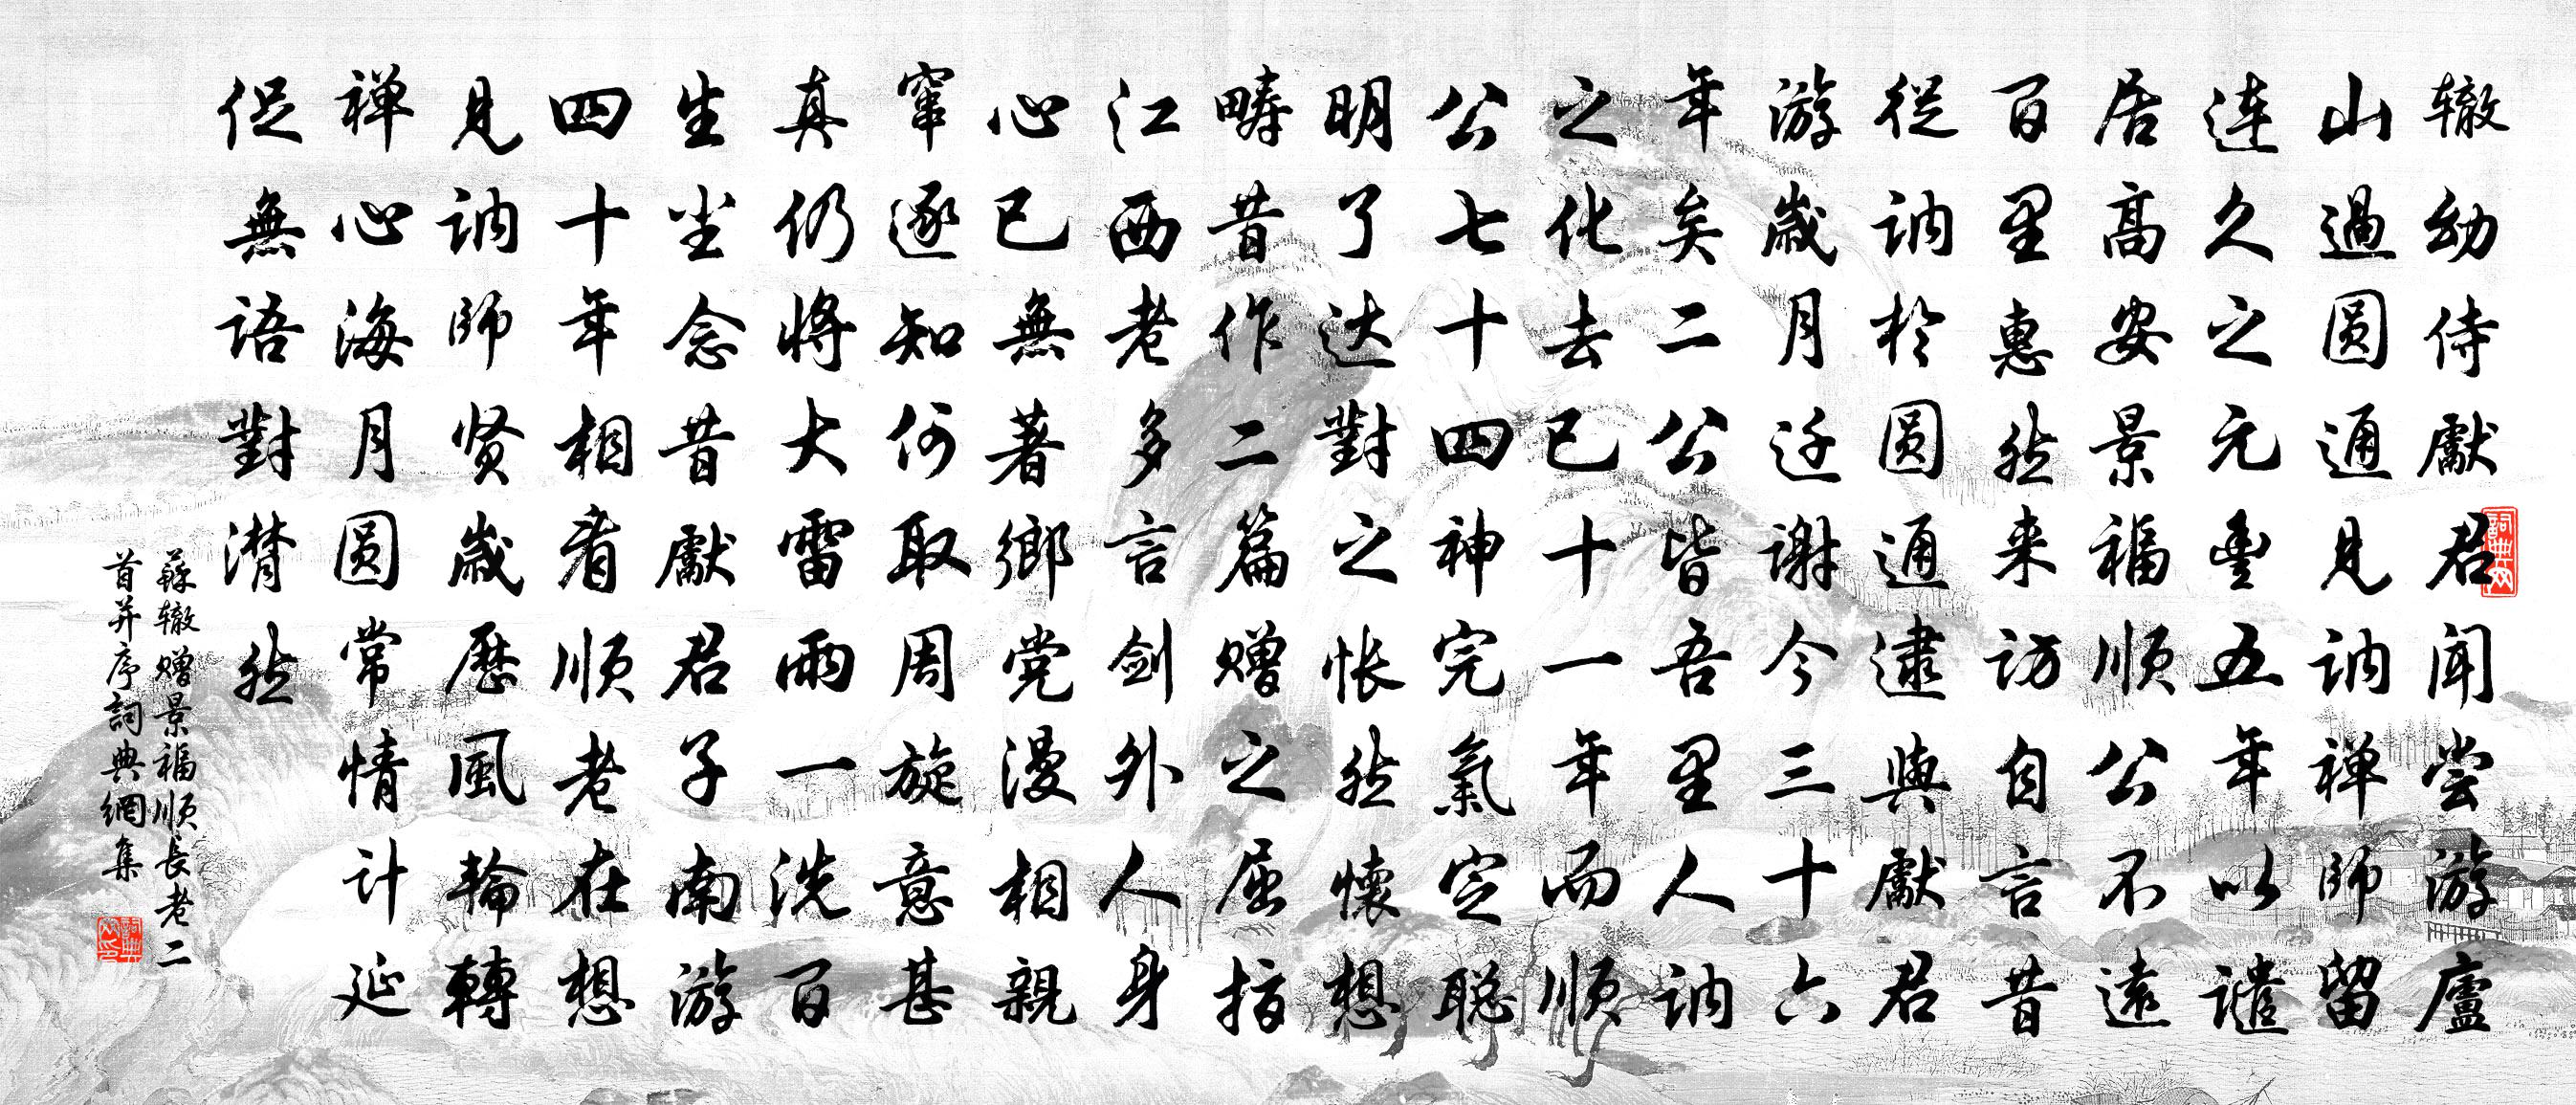 辙幼侍獻君闻尝游廬
山過圆通見讷禅師留
连久之元豊五年以谴
居高安景福顺公不遠
百里惠然来访自言昔
從讷於圆通逮與獻君
游歲月迁谢今三十六
年矣二公皆吾里人讷
之化去已十一年而顺
公七十四神完氣定聪
明了达對之怅然懷想
畴昔作二篇赠之屈指
江西老多言剑外人身
心已無著鄉党漫相親
窜逐知何取周旋意甚
真仍将大雷雨一洗百
生尘念昔獻君子南游
四十年相看顺老在想
見讷師贤歲歷風輪轉
禅心海月圆常情计延
促無語對潸然
蘇辙赠景福顺長老二
首并序詞典網集
詞典网
詞典网印